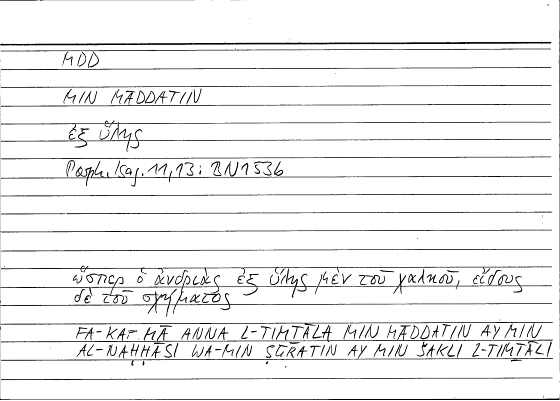 MDD
MIN MĀDDATIN
ἐξ ὕλης
Porph. Isag. 11,13: BN1536
ὥσπερ ὁ ἀνδριὰς ἐξ ὕλης μὲν τοῦ χαλκοῦ, εἴδους
δὲ τοῦ σχήματος
FA-KAMĀ ANNA L-TIMṮĀLA MIN MĀDDATIN AY MIN
AL-NAḤḤĀSI WA-MIN ṢŪRATIN AY MIN ŠAKLI L-TIMṮĀLI